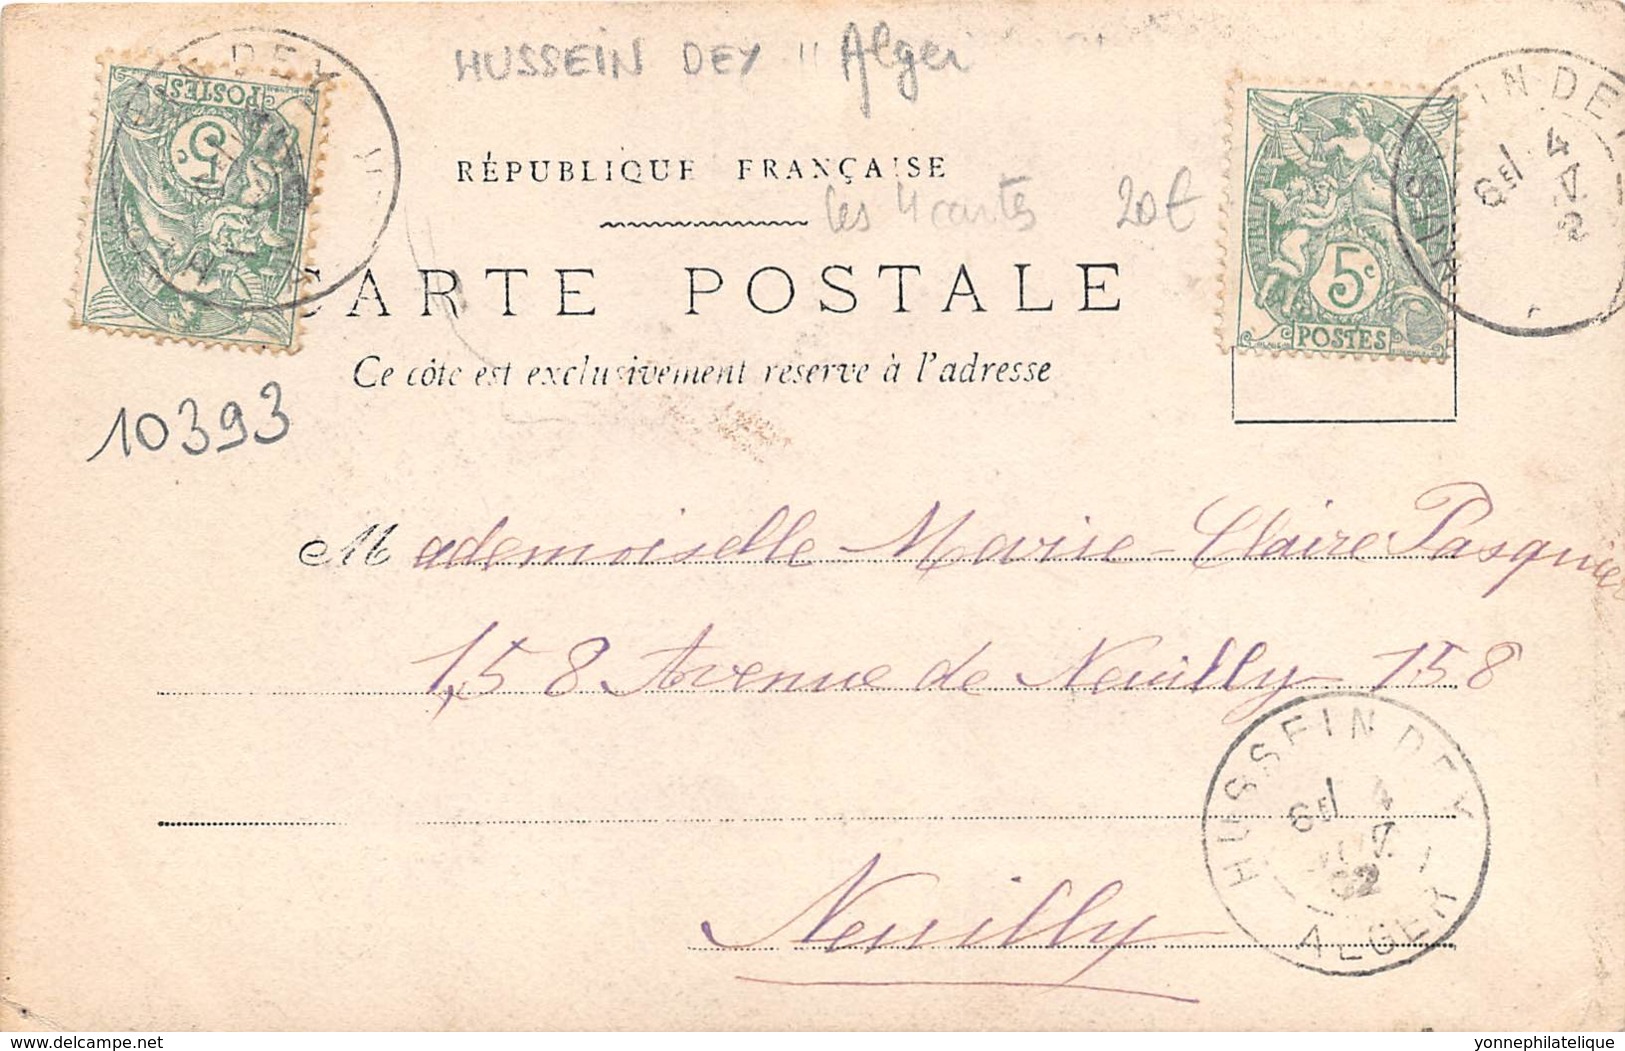 HUSSEIN DEY " Alger
POSTES
5c
RÉPUBLIQUE FRANÇAISE
les 4 cartes 20€
CARTE POSTALE
5c
POSTES
Ce côté est exclusivement réservé à l'adresse
10393
Mademoiselle Marie-Claire Pasquier
158 Avenue de Neuilly 158
HUSSEIN DEY
6E 4
02
ALGER
Neuilly
delcampe.net
yonnephilatelique